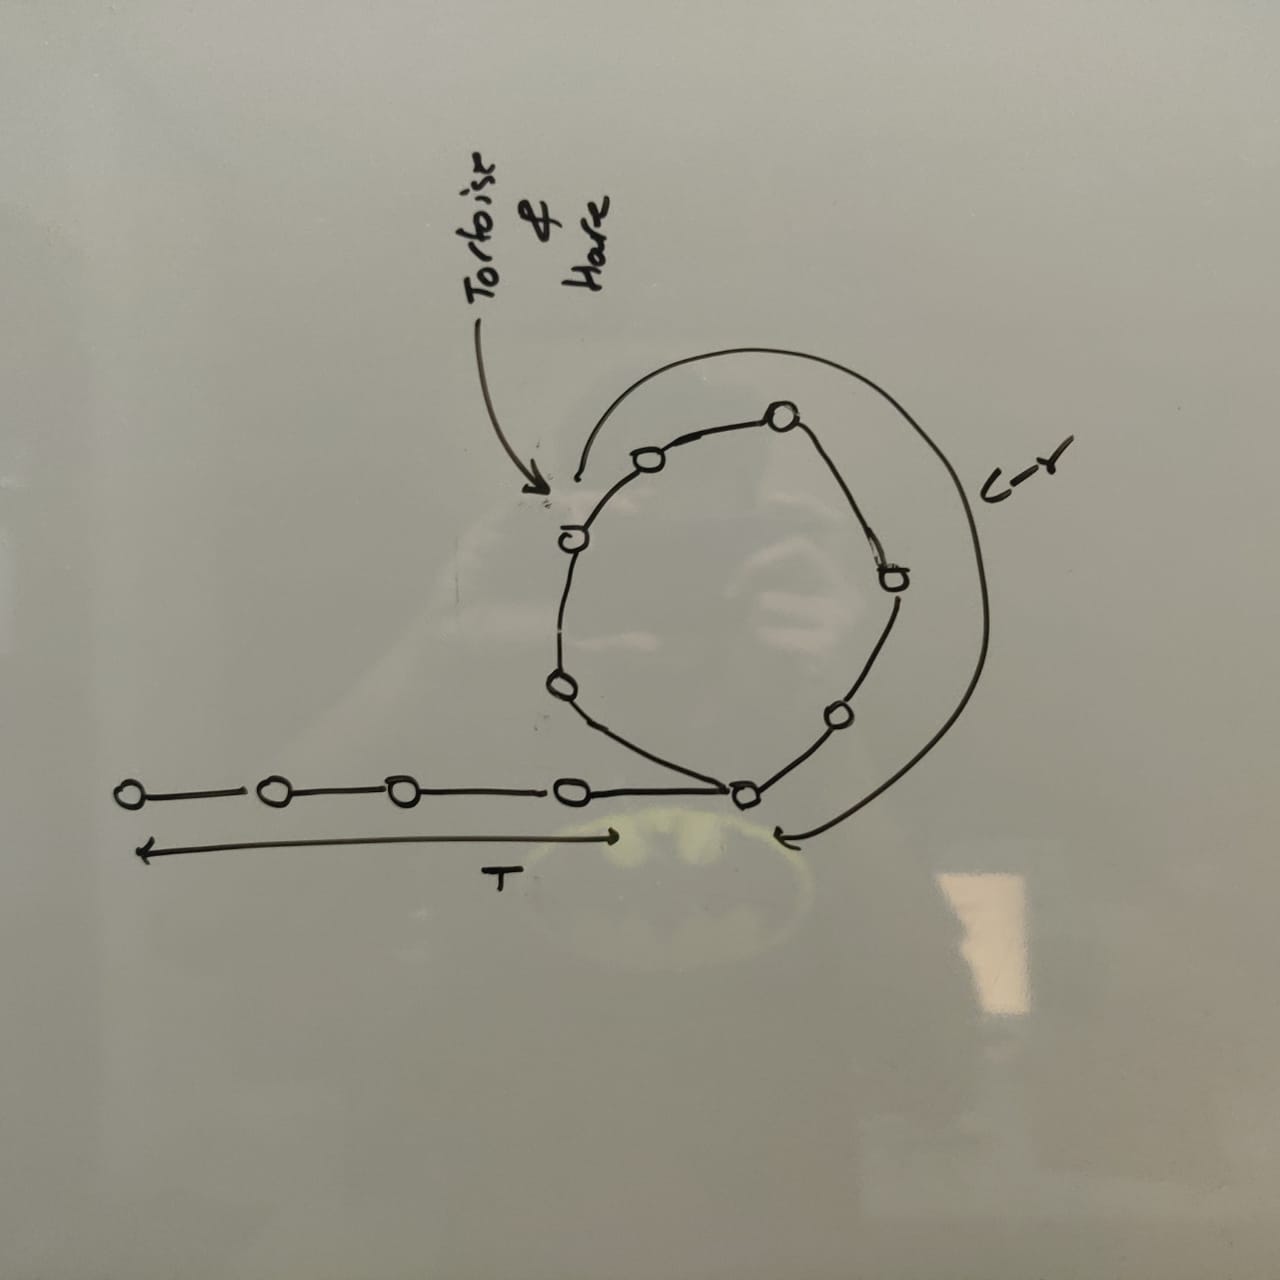 Tortoise
&
Hare
C-r
T